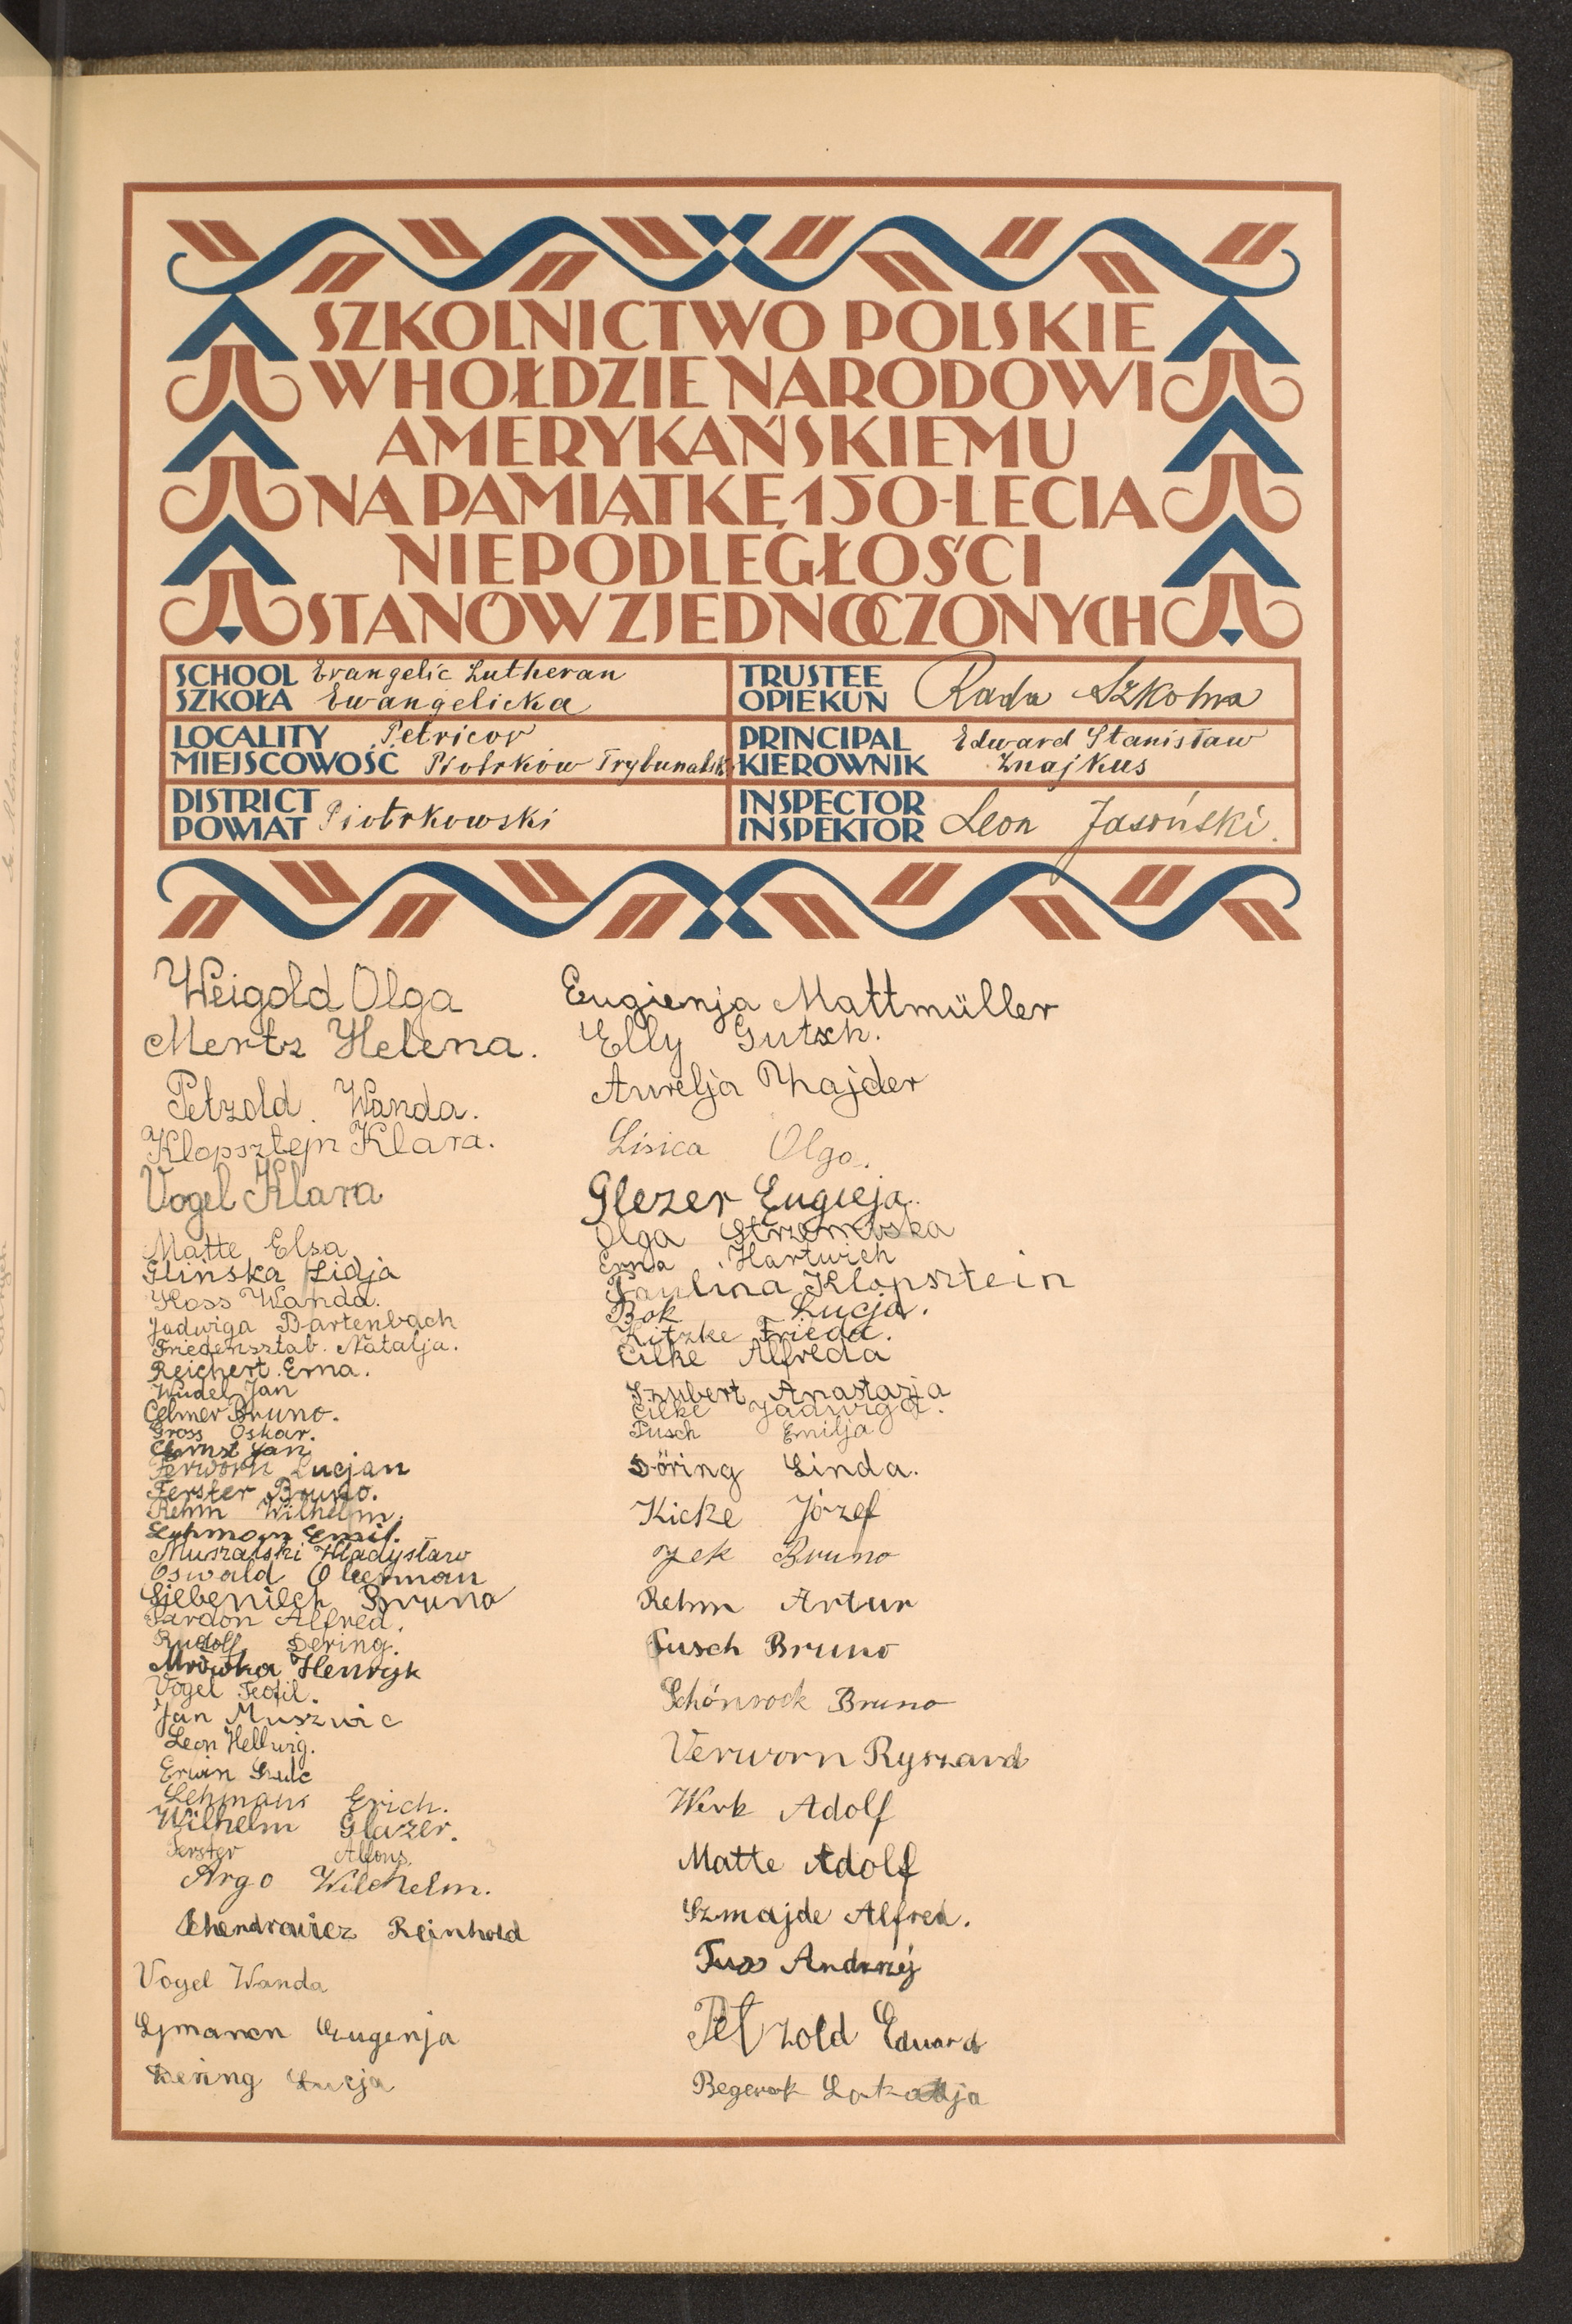 SZKOLNICTWO POLSKIE
W HOŁDZIE NARODOWI
AMERYKAŃSKIEMU
NA PAMIĄTKĘ 150-LECIA
NIEPODLEGŁOŚCI
STANÓW ZJEDNOCZONYCH
SCHOOL Evangelic Lutheran
SZKOŁA Ewangelicka
TRUSTEE
OPIEKUN Rada Szkolna
LOCALITY Petricov
MIEJSCOWOŚĆ Piotrków Trybunalski
PRINCIPAL Edward Stanisław
KIEROWNIK Znajkus
DISTRICT
POWIAT Piotrkowski
INSPECTOR
INSPEKTOR Leon Jasoński.
Weigold Olga
Mertz Helena.
Petzold. Wanda.
Klopsztejn Klara.
Vogel Klara
Matte Elsa
Glińska Lidja
Hoss Wanda.
Jadwiga Bartenbach
Friedensztab. Natalja.
Reichert. Erna.
Wudel Jan
Celmer Bruno.
Gross Oskar.
Jan
Ferworn Lucjan
Ferster Bruno.
Rehm Wilhelm.
Lehman Emil.
Muszalski Władysław
Oswald
Siebenilch Bruno
Alfred.
Rudolf Dering.
Mrówka Henryk
Vogel Teofil.
Jan Muszwic
Leon Hellwig.
Erwin Szulc
Lehmann Erich.
Wilhelm Glazer.
Ferster Alfons.
Argo Wilchelm.
Reinhold
Vogel Wanda
Eugenja
Dering Łucja
Eugienja Mattmüller
Elly Gutsch.
Aurelja
Lisica Olga.
Glezer Eugieja.
Olga
Erna Hartwich
Paulina Klopsztein
Bok Łucja.
Kitzke Frieda.
Cilke Alfreda
Szubert Anastazja
Cilke Jadwiga.
Pusch Emilja
Döring Linda.
Kicke Józef
Jek Bruno
Rehm Artur
Pusch Bruno
Schönrock Bruno
Verworn Ryszard
Werk Adolf
Matte Adolf
Szmajde Alfred.
Andrzéj
Petzold Eduard